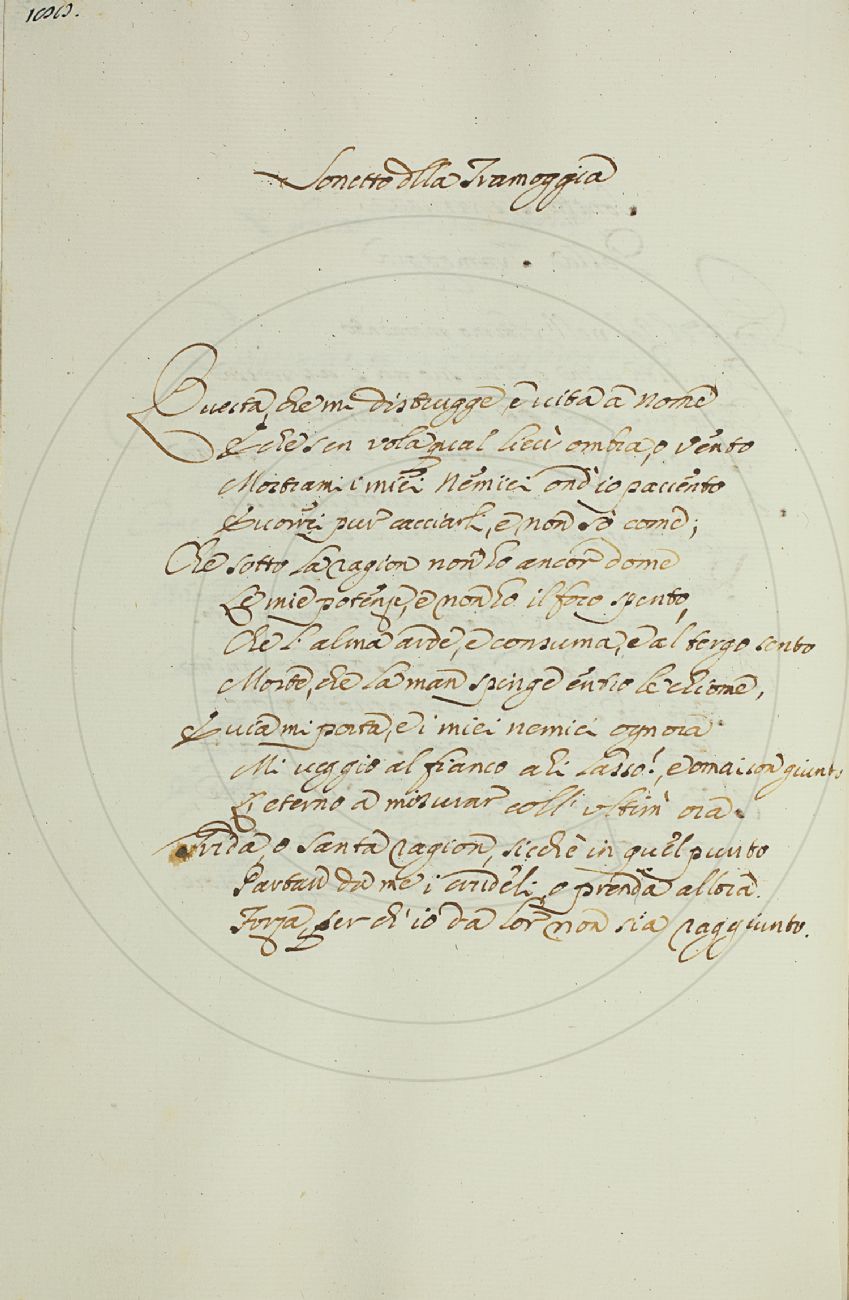 Sonetto dlla Tramoggia
Questa, che mi distrugge, e vita à nome
E che sen vola qual lieu ombra, o vento
Mostrami i miei Nemici ond' io pavento
E vorrei pur cacciarli, e non so come;
Che sotto la ragion non hò ancor dome
Le mie potenze, e non hò il foco spento,
Che l' alma arde, e consuma, e al tergo sento
Morte, che la man spinge entro le chiome,
E via mi porta, e i miei nemici ognora
Mi veggio al fianco ahi lasso!, e omai son giunto
L' eterno a misurar coll' ultim' ora.
Arrida, o santa ragion, sicchè in quel punto
Partan da me i crudeli, e prenda allora
Forza, per ch' io da lor non sia raggiunto.